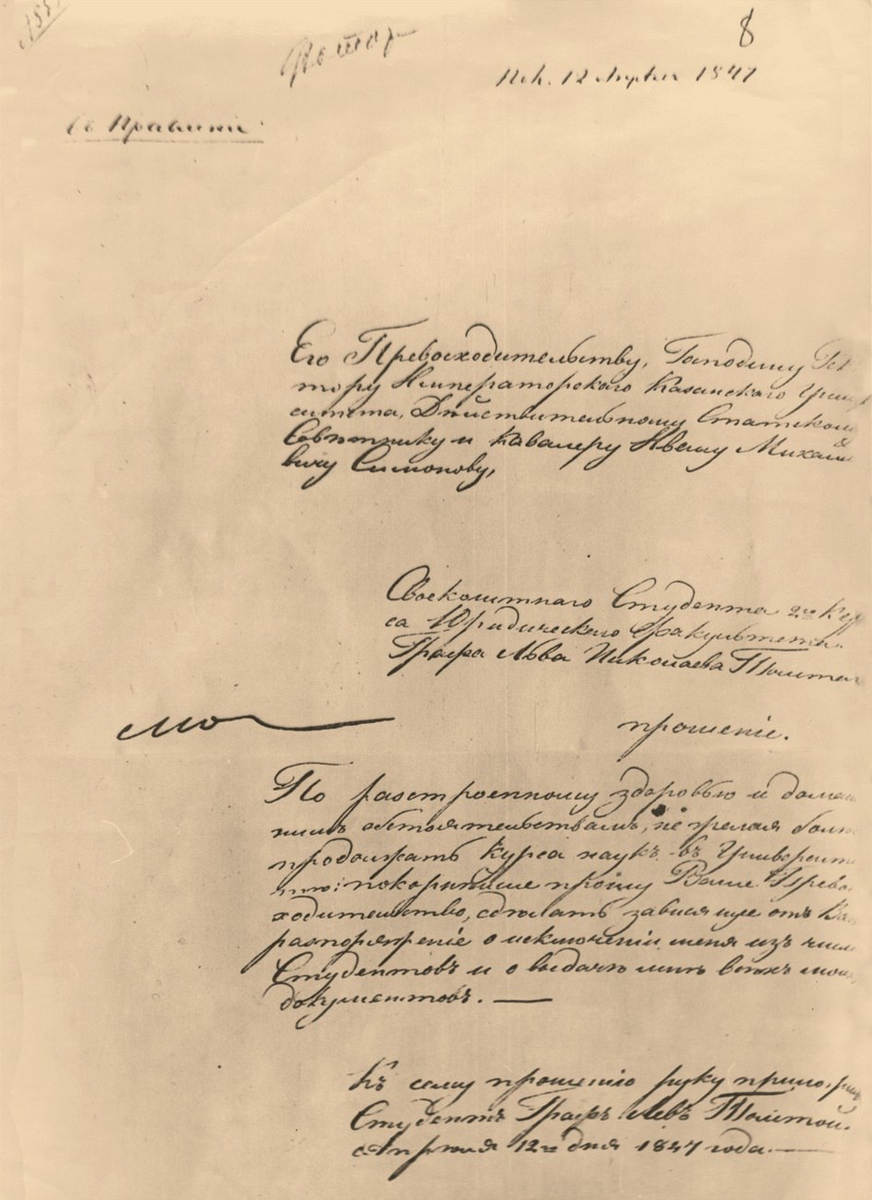 8
12 Апреля 1847
Въ Правленіе
Его Превосходительству, Господину Рек
тору Императорскаго Казанскаго Универ
ситета, Дѣйствительному Статскому
Совѣтнику и Кавалеру Ивану Михайло
вичу Симонову,
Своекоштнаго Студента 2го Кур
са Юридическаго Факультета
Графа Льва Николаева Толстаго
прошеніе.
По разстроенному здоровью и домаш
нимъ обстоятельствамъ, не желая болѣе
продолжать курса наукъ въ Университе
тѣ: покорнѣйше прошу Ваше Превос
ходительство, сдѣлать зависящее отъ Васъ
распоряженіе о исключеніи меня изъ числа
Студентовъ и о выдачѣ мнѣ всѣхъ моихъ
документовъ. —
Къ сему прошенію руку прилож
Студентъ Графъ Левъ Толстой.
Апрѣля 12го дня 1847 года. —